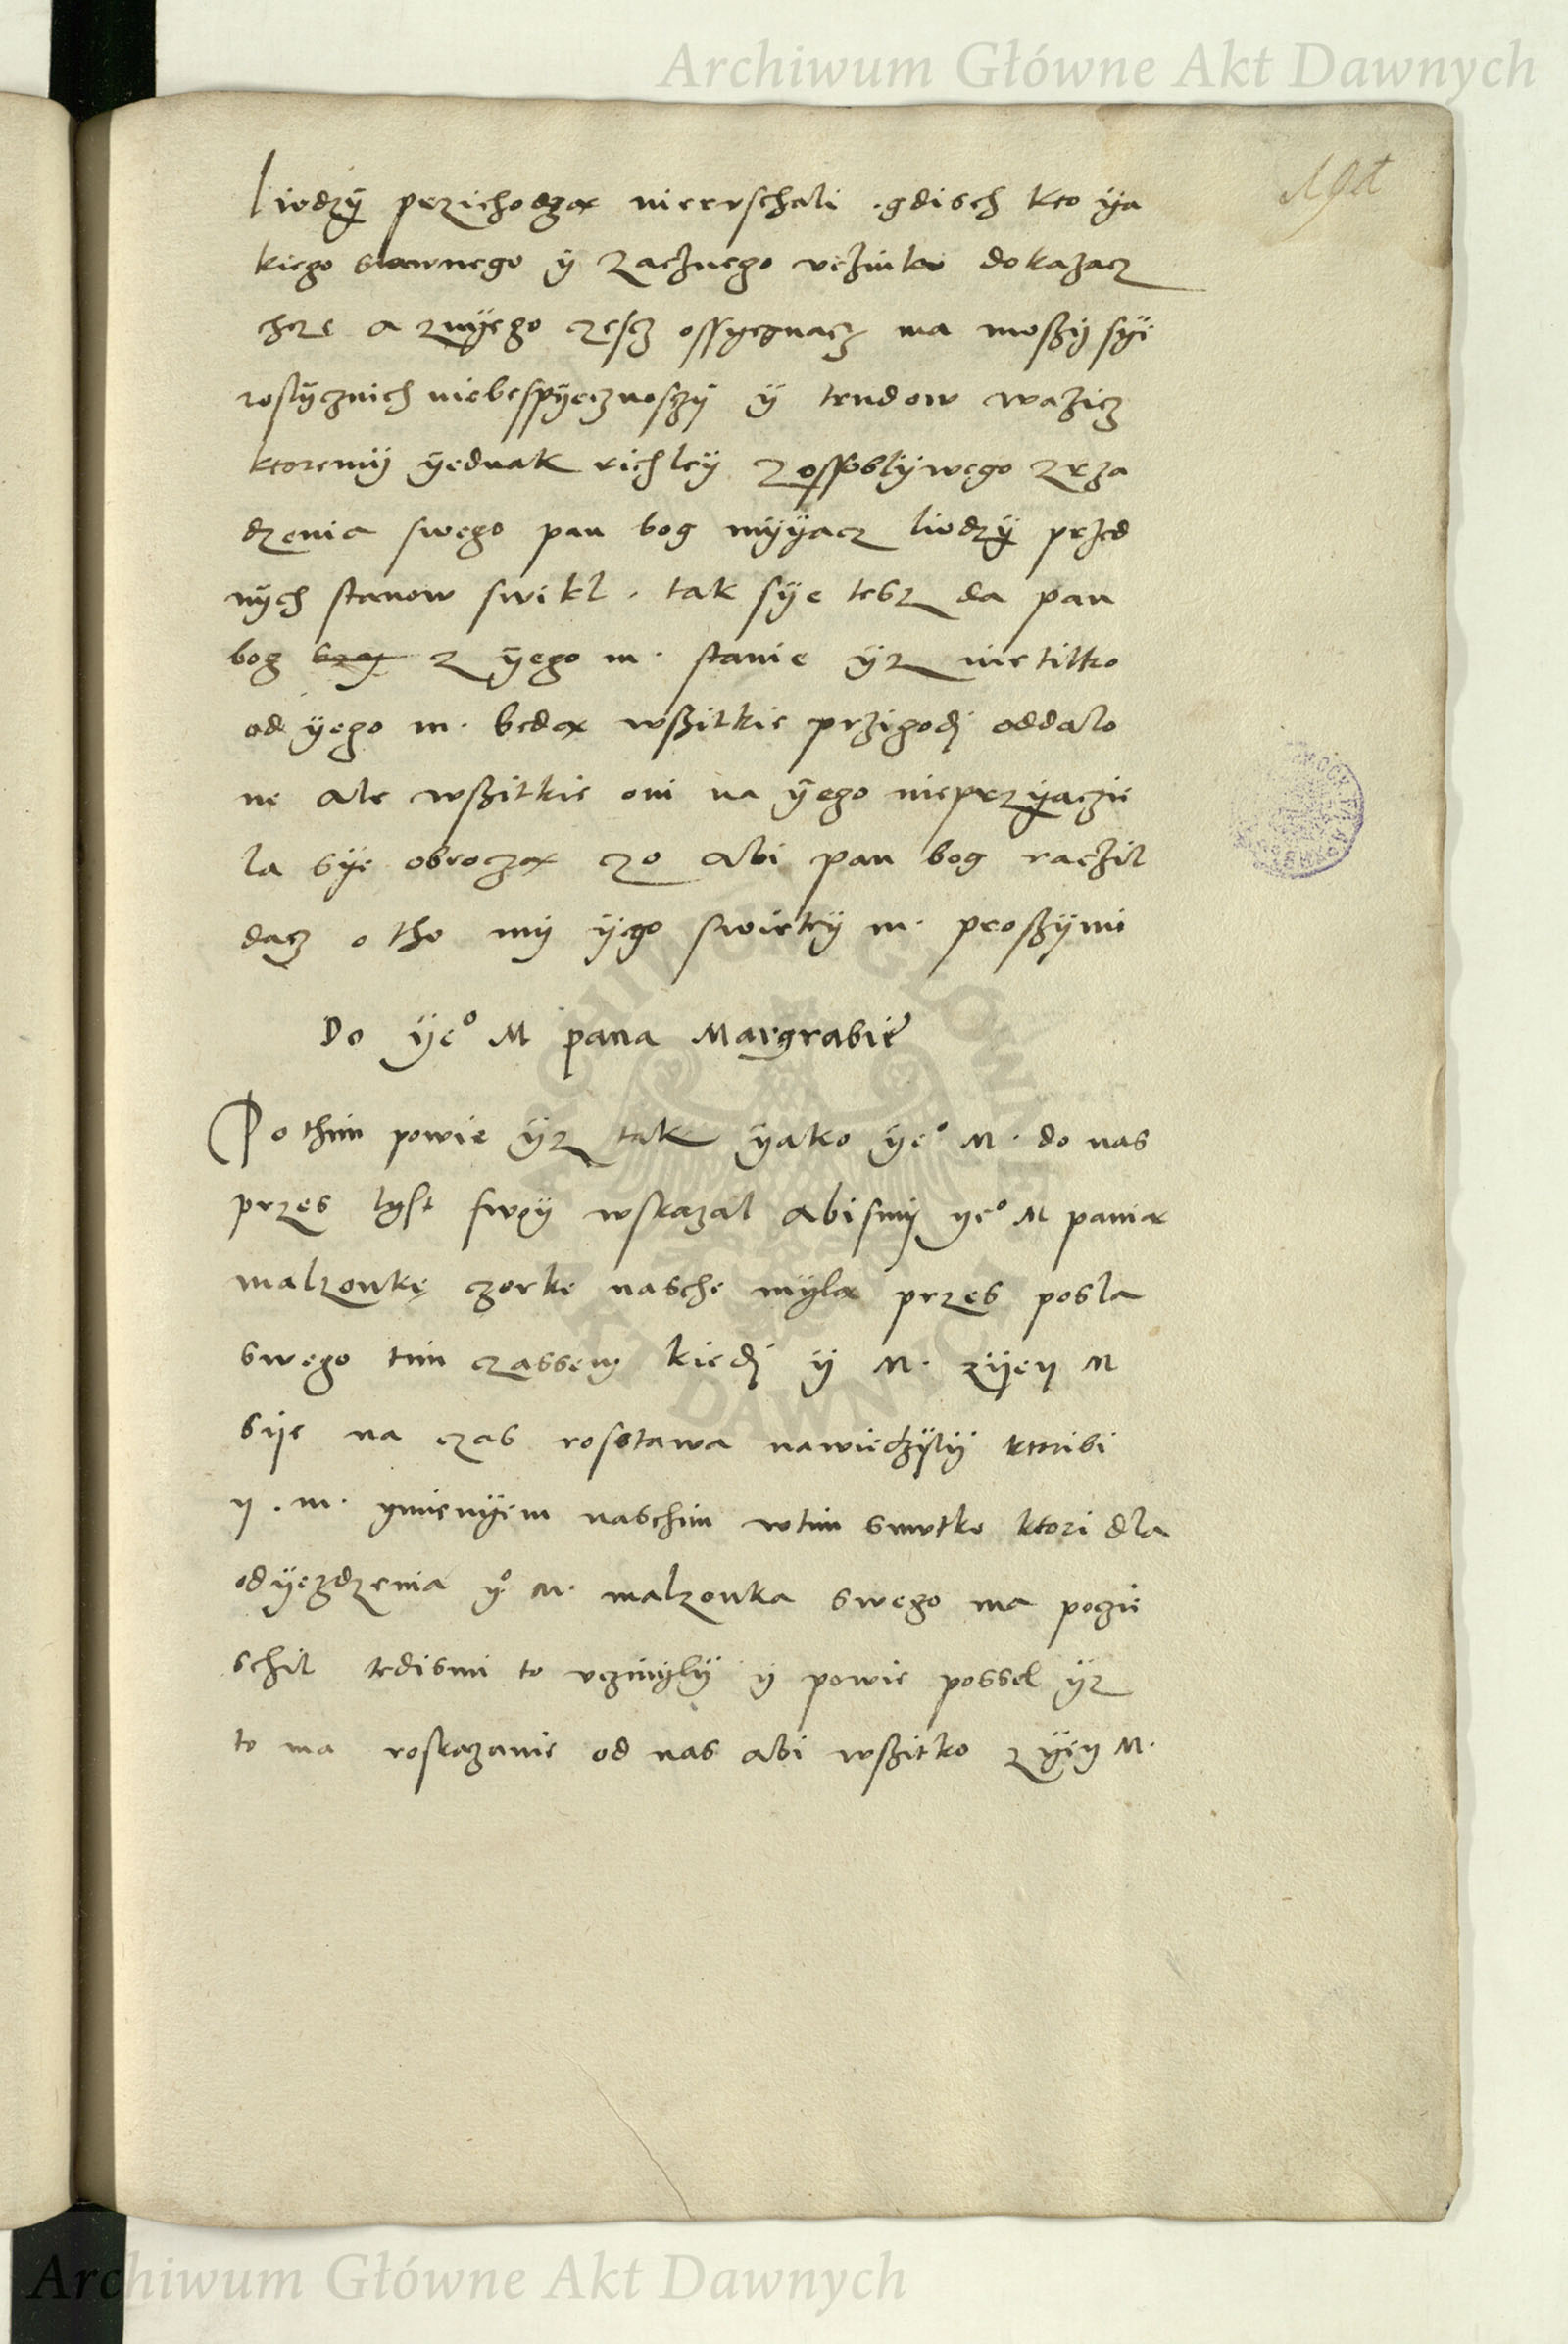 Archiwum Główne Akt Dawnych
liudzÿ przichodzą nieruschali . gdisch kto ÿa
kiego slawnego ÿ zacżnego vcżinku dokazacz
chcze a znÿego czescz ossyegnacz ma mosży sÿe
roslÿcznich niebespÿecznosczÿ ÿ trudow wazicz
ktoremÿ ÿednak richleÿ z ossoblÿwego zrza
dzenia swego pan bog mÿÿacz liudzÿ przed
nÿch stanow swikl . tak sÿe tesz da pan
bog z ÿego m. stanie ÿz nie tilko
od ÿego m. bedą wsżitkie przigodÿ oddalo
ne ale wsżitkie oni na ÿego nieprzÿaczie
la sÿe obroczą czo abi pan bog racżil
dacz o tho mÿ ÿgo swietÿ m. prosżÿmi
Do ÿe° M pana Margrabie
Po thim powie ÿz tak ÿako ÿe° M. do nas
przes lyst swoÿ wskazal abismÿ ye° M panią
malzonkę czorke nasche mÿlą przes posla
swego tim czassem kiedÿ ÿ M. zÿey M
sÿe na czas rosstawa nawiedzÿlÿ ktoribi
y . m. ymienÿem naschim wtim smvtko ktori dla
odÿezdzenia ÿ° M. malzonka swego ma poczie
schil tedismi to vczinÿlÿ ÿ powie possel ÿz
to ma roskazanie od nas abi wsżitko z ÿeÿ M.
Archiwum Główne Akt Dawnych